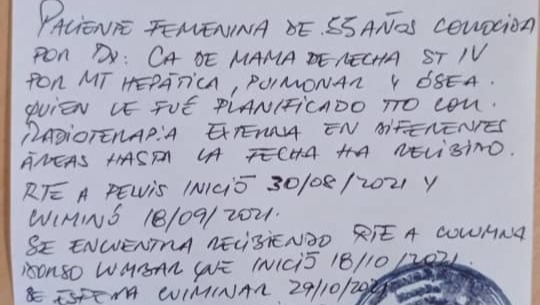 PACIENTE FEMENINA DE 55 AÑOS CONOCIDA
POR DX: CA DE MAMA DERECHA ST IV
POR MT HEPÁTICA, PULMONAR Y ÓSEA.
QUIEN LE FUÉ PLANIFICADO TTO CON.
RADIOTERAPIA EXTERNA EN DIFERENTES
ÁREAS HASTA LA FECHA HA RECIBIDO.
RTE A PELVIS INICIÓ 30/08/2021 Y
CULMINÓ 18/09/2021.
SE ENCUENTRA RECIBIENDO RTE A COLUMNA
DORSO LUMBAR QUE INICIÓ 18/10/2021.
SE ESPERA CULMINAR 29/10/2021